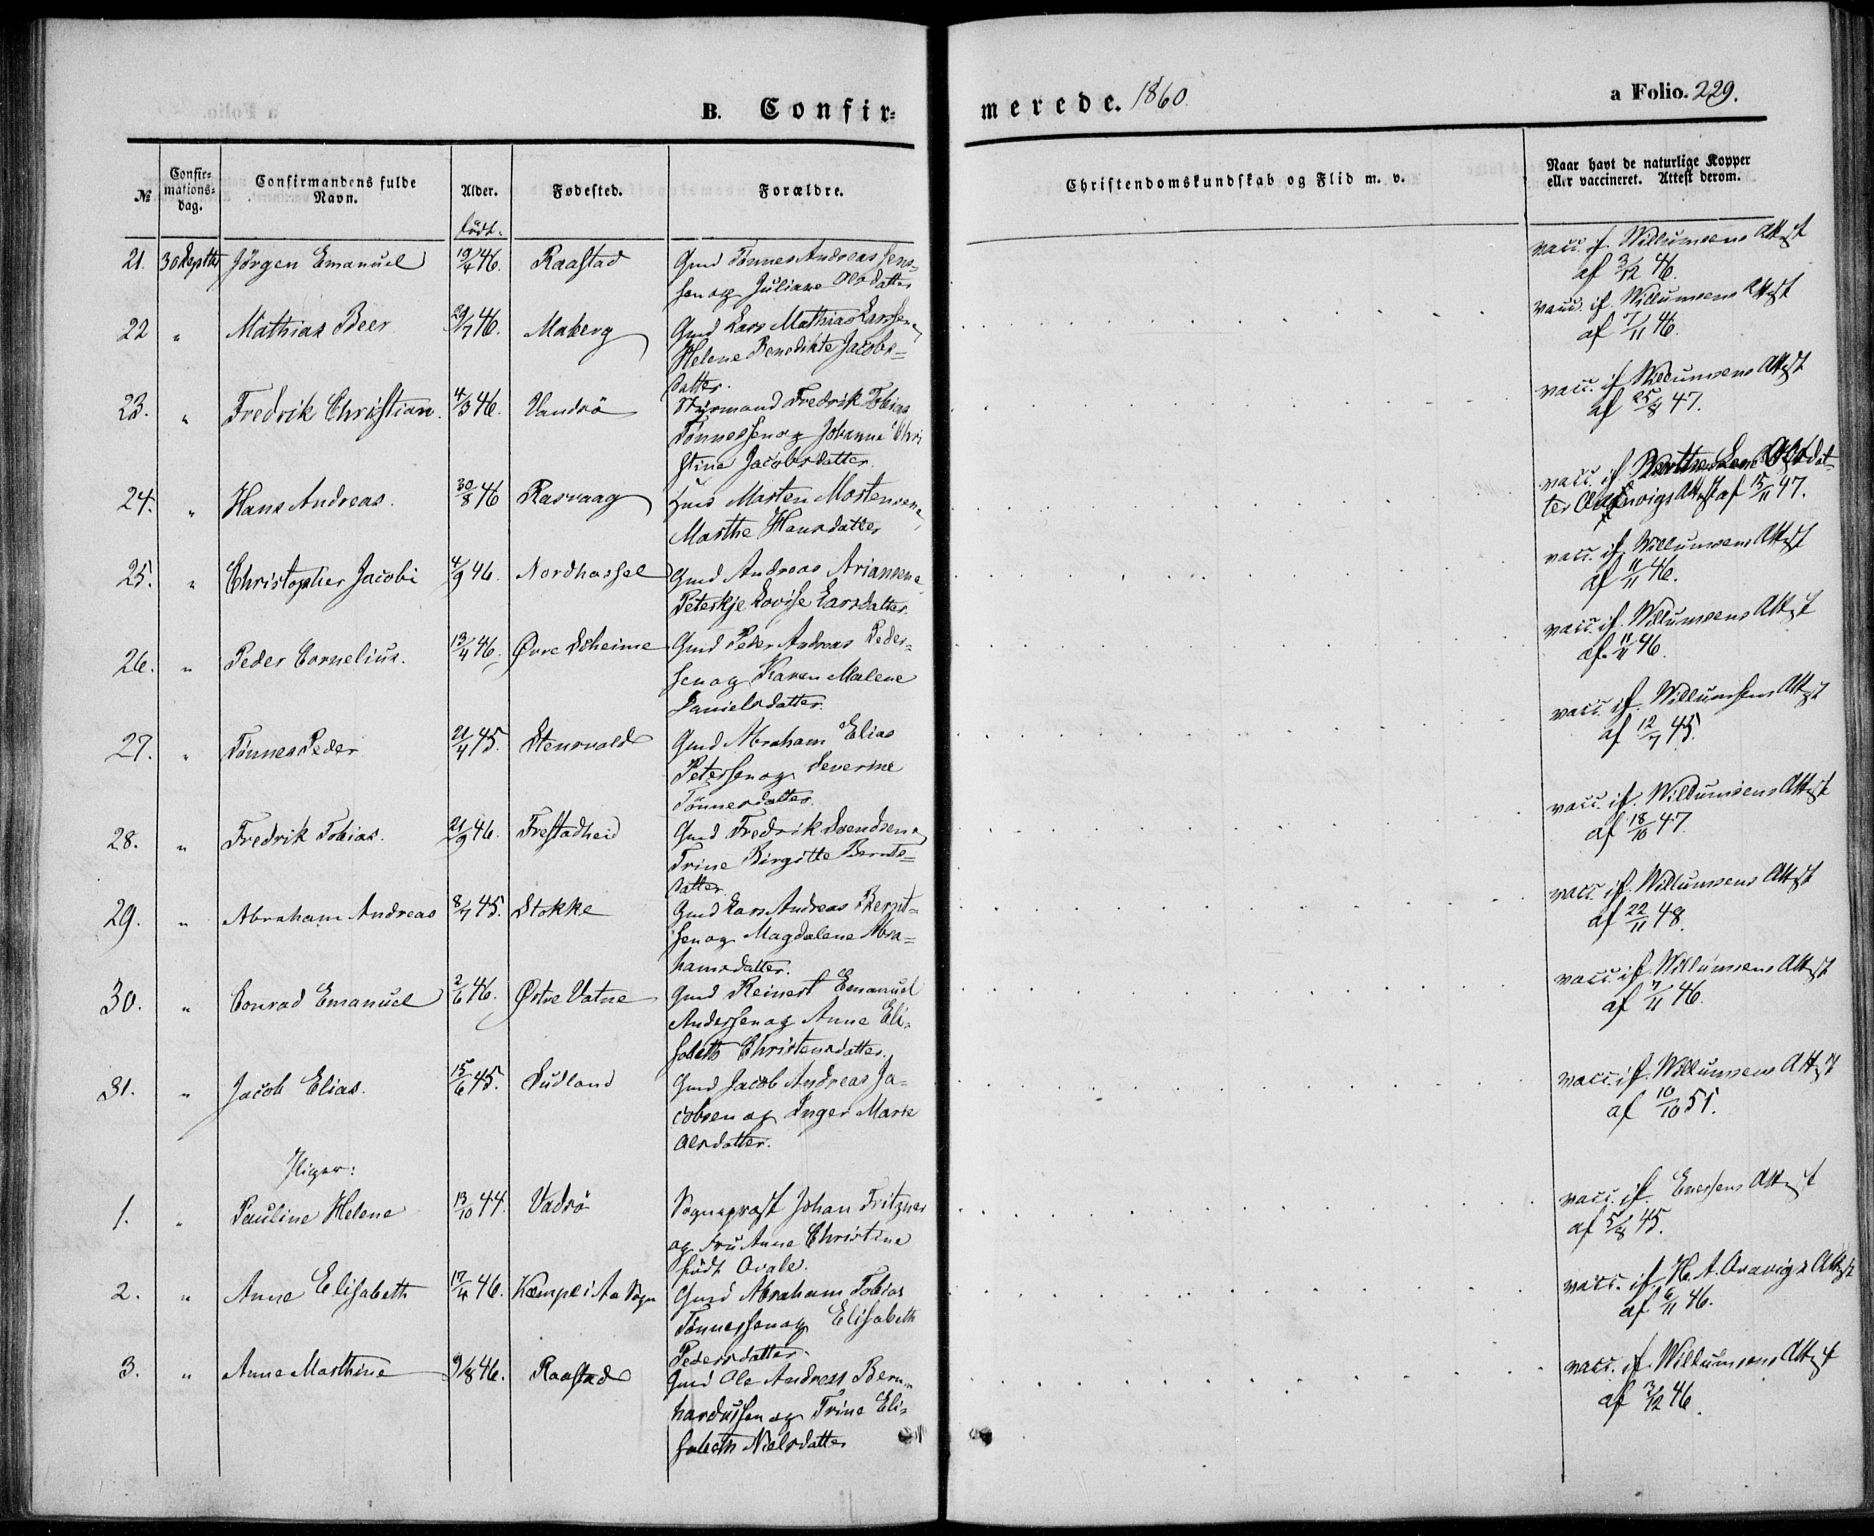 B. Confir-
merede. 1860
a Folio. 229.
№
Confir-
mations-
dag.
Confirmandens fulde
Navn.
Alder.
Fødested.
Forældre.
Christendomskundskab og Flid m. v.
Naar havt de naturlige Kopper
eller vaccineret. Attest derom.
født.
21. 30 Septbr Jörgen Emanuel 19/4 46. Raastad Gmd Tönnes Andreas Jens-
sen og Juliane Olsdatter
vacc. if. Willumsens Attest
af 3/12 46.
22 " Mathias Beer. 29/7 46. Maberg Gmd Lars Mathias Larssen o
Helene Benedikte Jacobs-
datter.
vacc. if. Willumsens Attest
af 7/11 46.
23. " Fredrik Christian. 4/3 46. Vandsö Styrmand Fredrik Tobias
Tönnessen og Johanne Chri
stine Jacobsdatter.
vacc. if Willumsens Attest
af 25/8 47.
24. " Hans Andreas. 30/8 46 Rasvaag Huus Morten Mortensen o
Marthe Hansdatter
vacc. if Olsdat-
ter Attest af 15/11 47.
25. " Christopher Jacobi 4/9 46. Nordhassel Gmd Andreas Ariansen o
Peterkje Lovise Larsdatter.
vacc. if. Willumsens Attest
af 11/11 46.
26. " Peder Cornelius. 13/4 46. Øvre Gmd Peder Andreas Peder-
sen og Karen Malene
Danielsdatter.
vacc. if. Willumsens Attest
af 11/11 46.
27. " Tönnes Peder 21/4 45. Stensvold Gmd Abraham Elias
Petersen og Severine
Tönnesdatter.
vacc. if. Willumsens Attest
af 12/7 45.
28. " Fredrik Tobias. 21/9 46. Frestadheid Gmd Fredrik Svendsen o
Trine Birgitte Bernts-
datter.
vacc. if. Willumsens Attest
af 18/10 47.
29. " Abraham Andreas 8/7 45. Stokke Gmd Lars Andreas Bernt-
sen og Magdalene Abra-
hamsdatter.
vacc. if. Willumsens Attest
af 22/11 48.
30. " Conrad Emanuel 2/6 46. Østre Vatne Gmd Reinert Emanuel
Anderssen og Anne Eli-
sabeth Christensdatter.
vacc. if. Willumsens Attest
af 7/11 46.
31. " Jacob Elias. 15/6 45. Sudland Gmd Jacob Andreas Ja-
cobsen og Inger Marie
Olsdatter.
vacc. if. Willumsens Attest
af 10/10 51.
Piger:
1. " Pauline Helene 13/10 44. Vadsö Sogneprest Johan Fritzner
og Fru Anne Christine
født Qvale.
vacc. if. Attest
af 5/8 45.
2. " Anne Elisabeth 17/4 46. Kæmpe i Aa Sogn Gmd Abraham Tobias
Tönnessen og Elisabeth
Pedersdatter.
vacc. if. H. A. Attest
af 6/11 46.
3. " Anne Marthine 9/8 46. Raastad Gmd Ole Andreas Bern-
hardussen og Trine Eli-
sabeth Nielsdatter
vacc. if. Willumsens Attest
af 3/12 46.